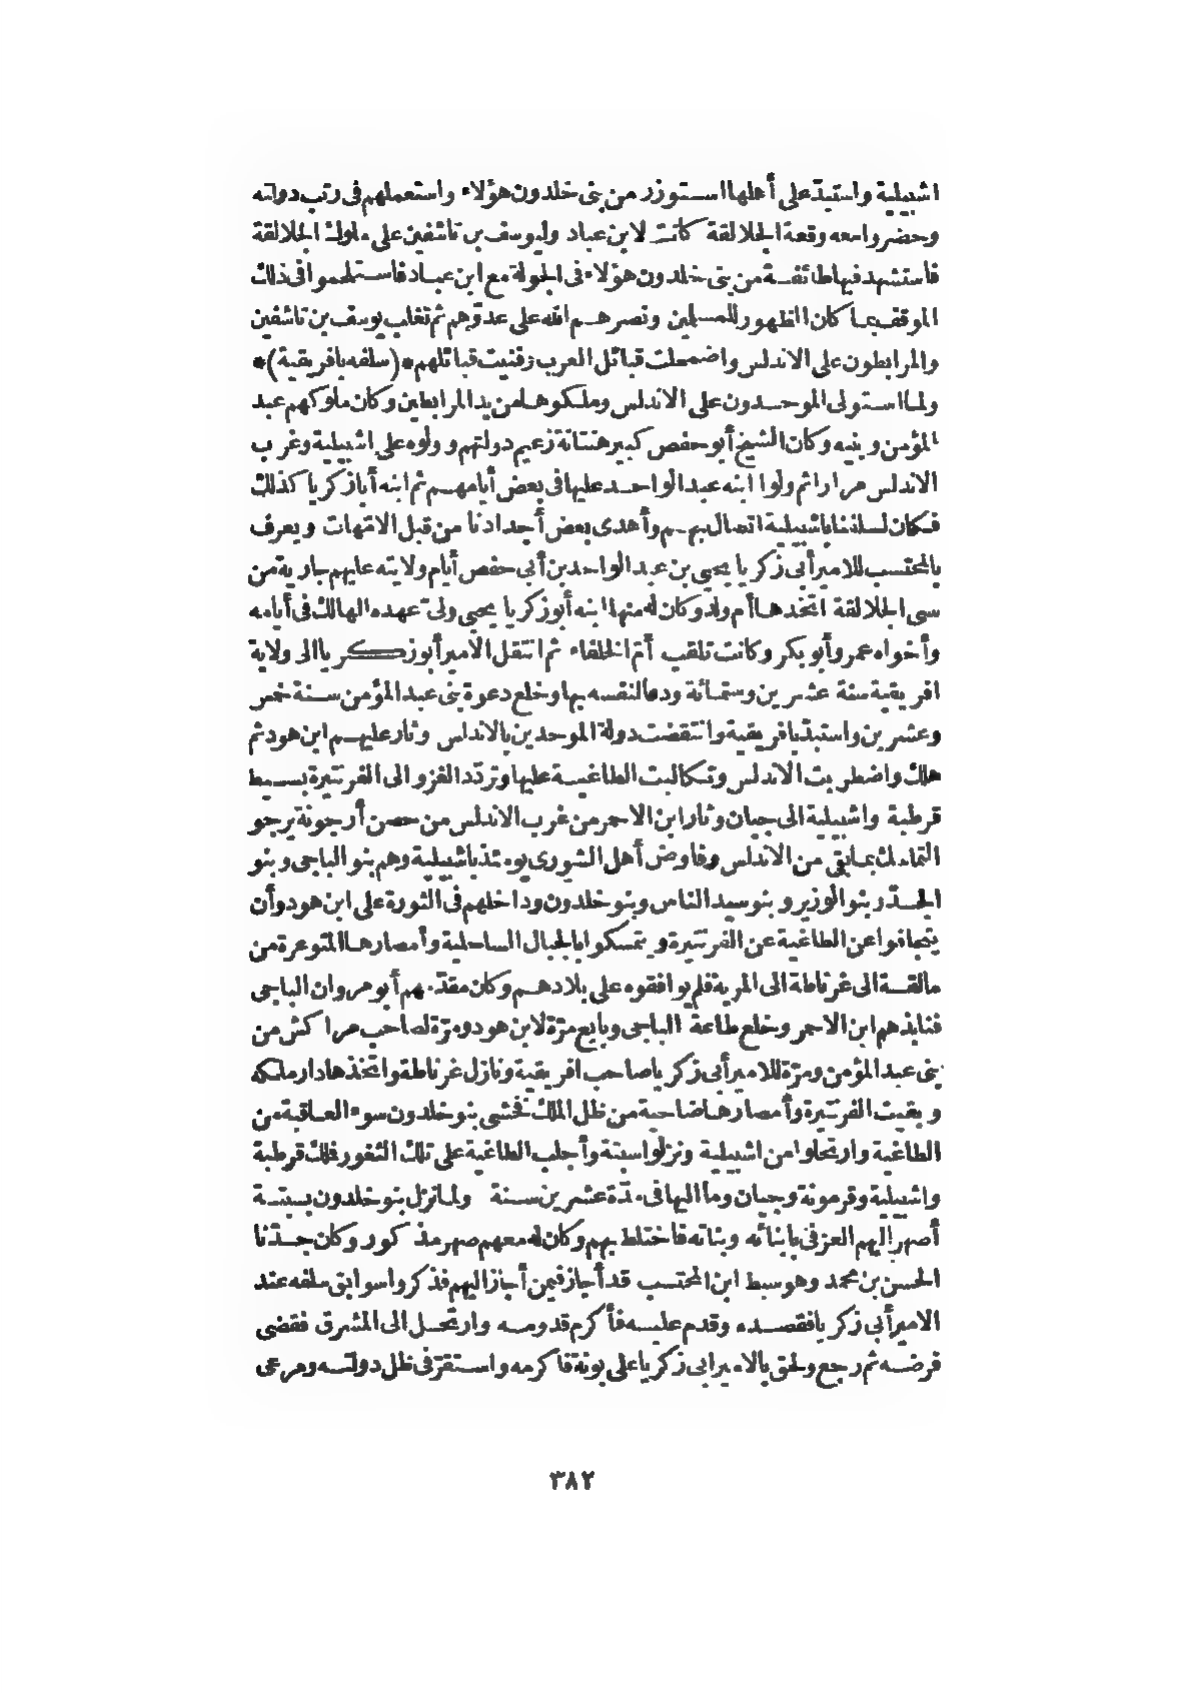 اشبيلية واستبدّ على أهلها استوزر من بنى خلدون هؤلاء واستعملهم فى رتب دولته
وحضروا معه وقعة الجلالقة كانت لابن عباد وليوسف بن تاشفين على ملوك الجلالقة
فاستشهد فيها طائفة من بنى خلدون هؤلاء فى الجولة مع ابن عباد فاستلحموا فى ذلك
الموقف بما كان الظهور للمسلمين ونصرهم الله على عدوّهم ثم تغلب يوسف بن تاشفين
والمرابطون على الاندلس واضمحلت قبائل العرب وفنيت قبائلهم * (سلفه بافريقية) *
ولما استولى الموحدون على الاندلس وملكوها من يد المرابطين وكان ملوكهم عبد
المؤمن وبنيه وكان الشيخ أبو حفص كبير هنتاتة زعيم دولتهم وولوه على اشبيلية وغرب
الاندلس مرارا ثم ولوا ابنه عبد الواحد عليها فى بعض أيامهم ثم ابنه أبا زكريا كذلك
فكان لسلفنا باشبيلية اتصال بهم وأهدى بعض أجدادنا من قبل الامّهات ويعرف
بالمحتسب للامير أبى زكريا يحيى بن عبد الواحد بن أبى حفص أيام ولايته عليهم جارية من
سبى الجلالقة اتخذها أم ولد وكان له منها ابنه أبو زكريا يحيى ولىّ عهده الهالك فى أيامه
وأخواه عمر وأبو بكر وكانت تلقب أمّ الخلفاء ثم انتقل الامير أبو زكريا الى ولاية
افريقية سنة عشرين وستمائة ودعا لنفسه بها وخلع دعوة بنى عبد المؤمن سنة خمس
وعشرين واستبدّ بافريقية وانتقضت دولة الموحدين بالاندلس وثار عليهم ابن هود ثم
هلك واضطربت الاندلس وتكالبت الطاغية عليها وتردّد الغزو الى الفرنتيرة بسيط
قرطبة واشبيلية الى جيان وثار ابن الاحمر من غرب الاندلس من حصن أرجونة يرجو
التماسك بما بقى من الاندلس وفاوض أهل الشورى يومئذ باشبيلية وهم بنو الباجى وبنو
الجدّ وبنو الوزير وبنو سيد الناس وبنو خلدون وداخلهم فى الثورة على ابن هود وأن
يتجافوا عن الطاغية عن الفرنتيرة ويتمسكوا بالجبال الساحلية وأمصارها المتوعرة من
مالقة الى غرناطة الى المرية فلم يوافقوه على بلادهم وكان مقدّمهم أبو مروان الباجى
فنابذهم ابن الاحمر وخلع طاعة الباجى وبايع مرّة لابن هود ومرّة لصاحب مراكش من
بنى عبد المؤمن ومرّة للامير أبى زكريا صاحب افريقية ونازل غرناطة واتخذها دار ملكه
وبقيت الفرنتيرة وأمصارها ضاحية من ظل الملك فخشى بنو خلدون سوء العاقبة من
الطاغية وارتحلوا من اشبيلية ونزلوا سبتة وأجلب الطاغية على تلك الثغور فملك قرطبة
واشبيلية وقرمونة وجيان وما اليها فى مدّة عشرين سنة ولما نزل بنو خلدون بسبتة
أصهر اليهم العزفى بابنائه وبناته فاختلط بهم وكان له معهم صهر مذكور وكان جدّنا
الحسن بن محمد وهو سبط ابن المحتسب قد أجاز فيمن أجاز اليهم فذكروا سوابق سلفه عند
الامير أبى زكريا فقصده وقدم عليه فأكرم قدومه وارتحل الى المشرق فقضى
فرضه ثم رجع ولحق بالامير ابى زكريا على بونة فاكرمه واستقرّ فى ظل دولته ومرعى
٣٨٢